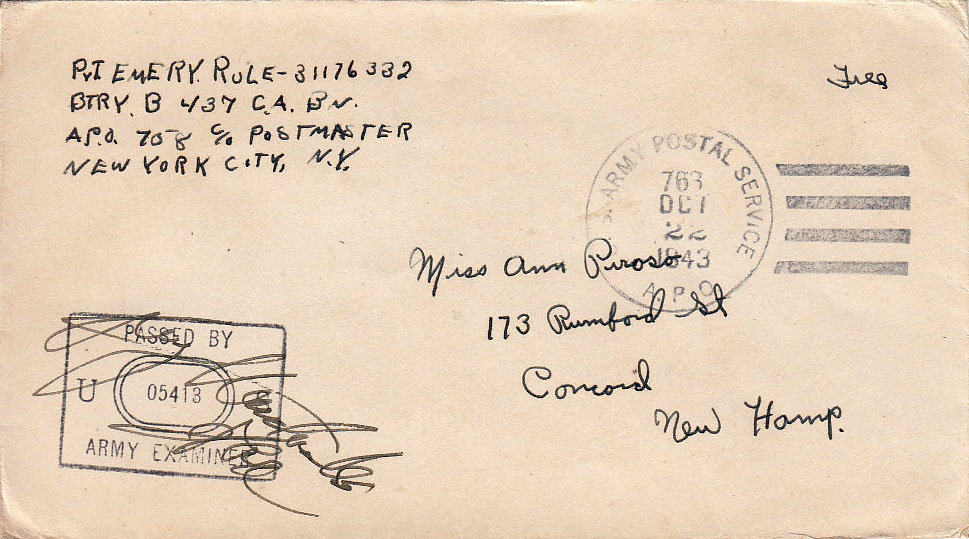 Pvt EMERY. RULE-31176332
BTRY. B 437 C.A. BN.
A.P.O. 758 c/o POSTMASTER
NEW YORK CITY, N.Y.
Free
U.S. ARMY POSTAL SERVICE
763
OCT
22
1943
A.P.O.
Miss Ann Piroso
173 Rumford St
Concord
New Hamp.
PASSED BY
U 05413
ARMY EXAMINER